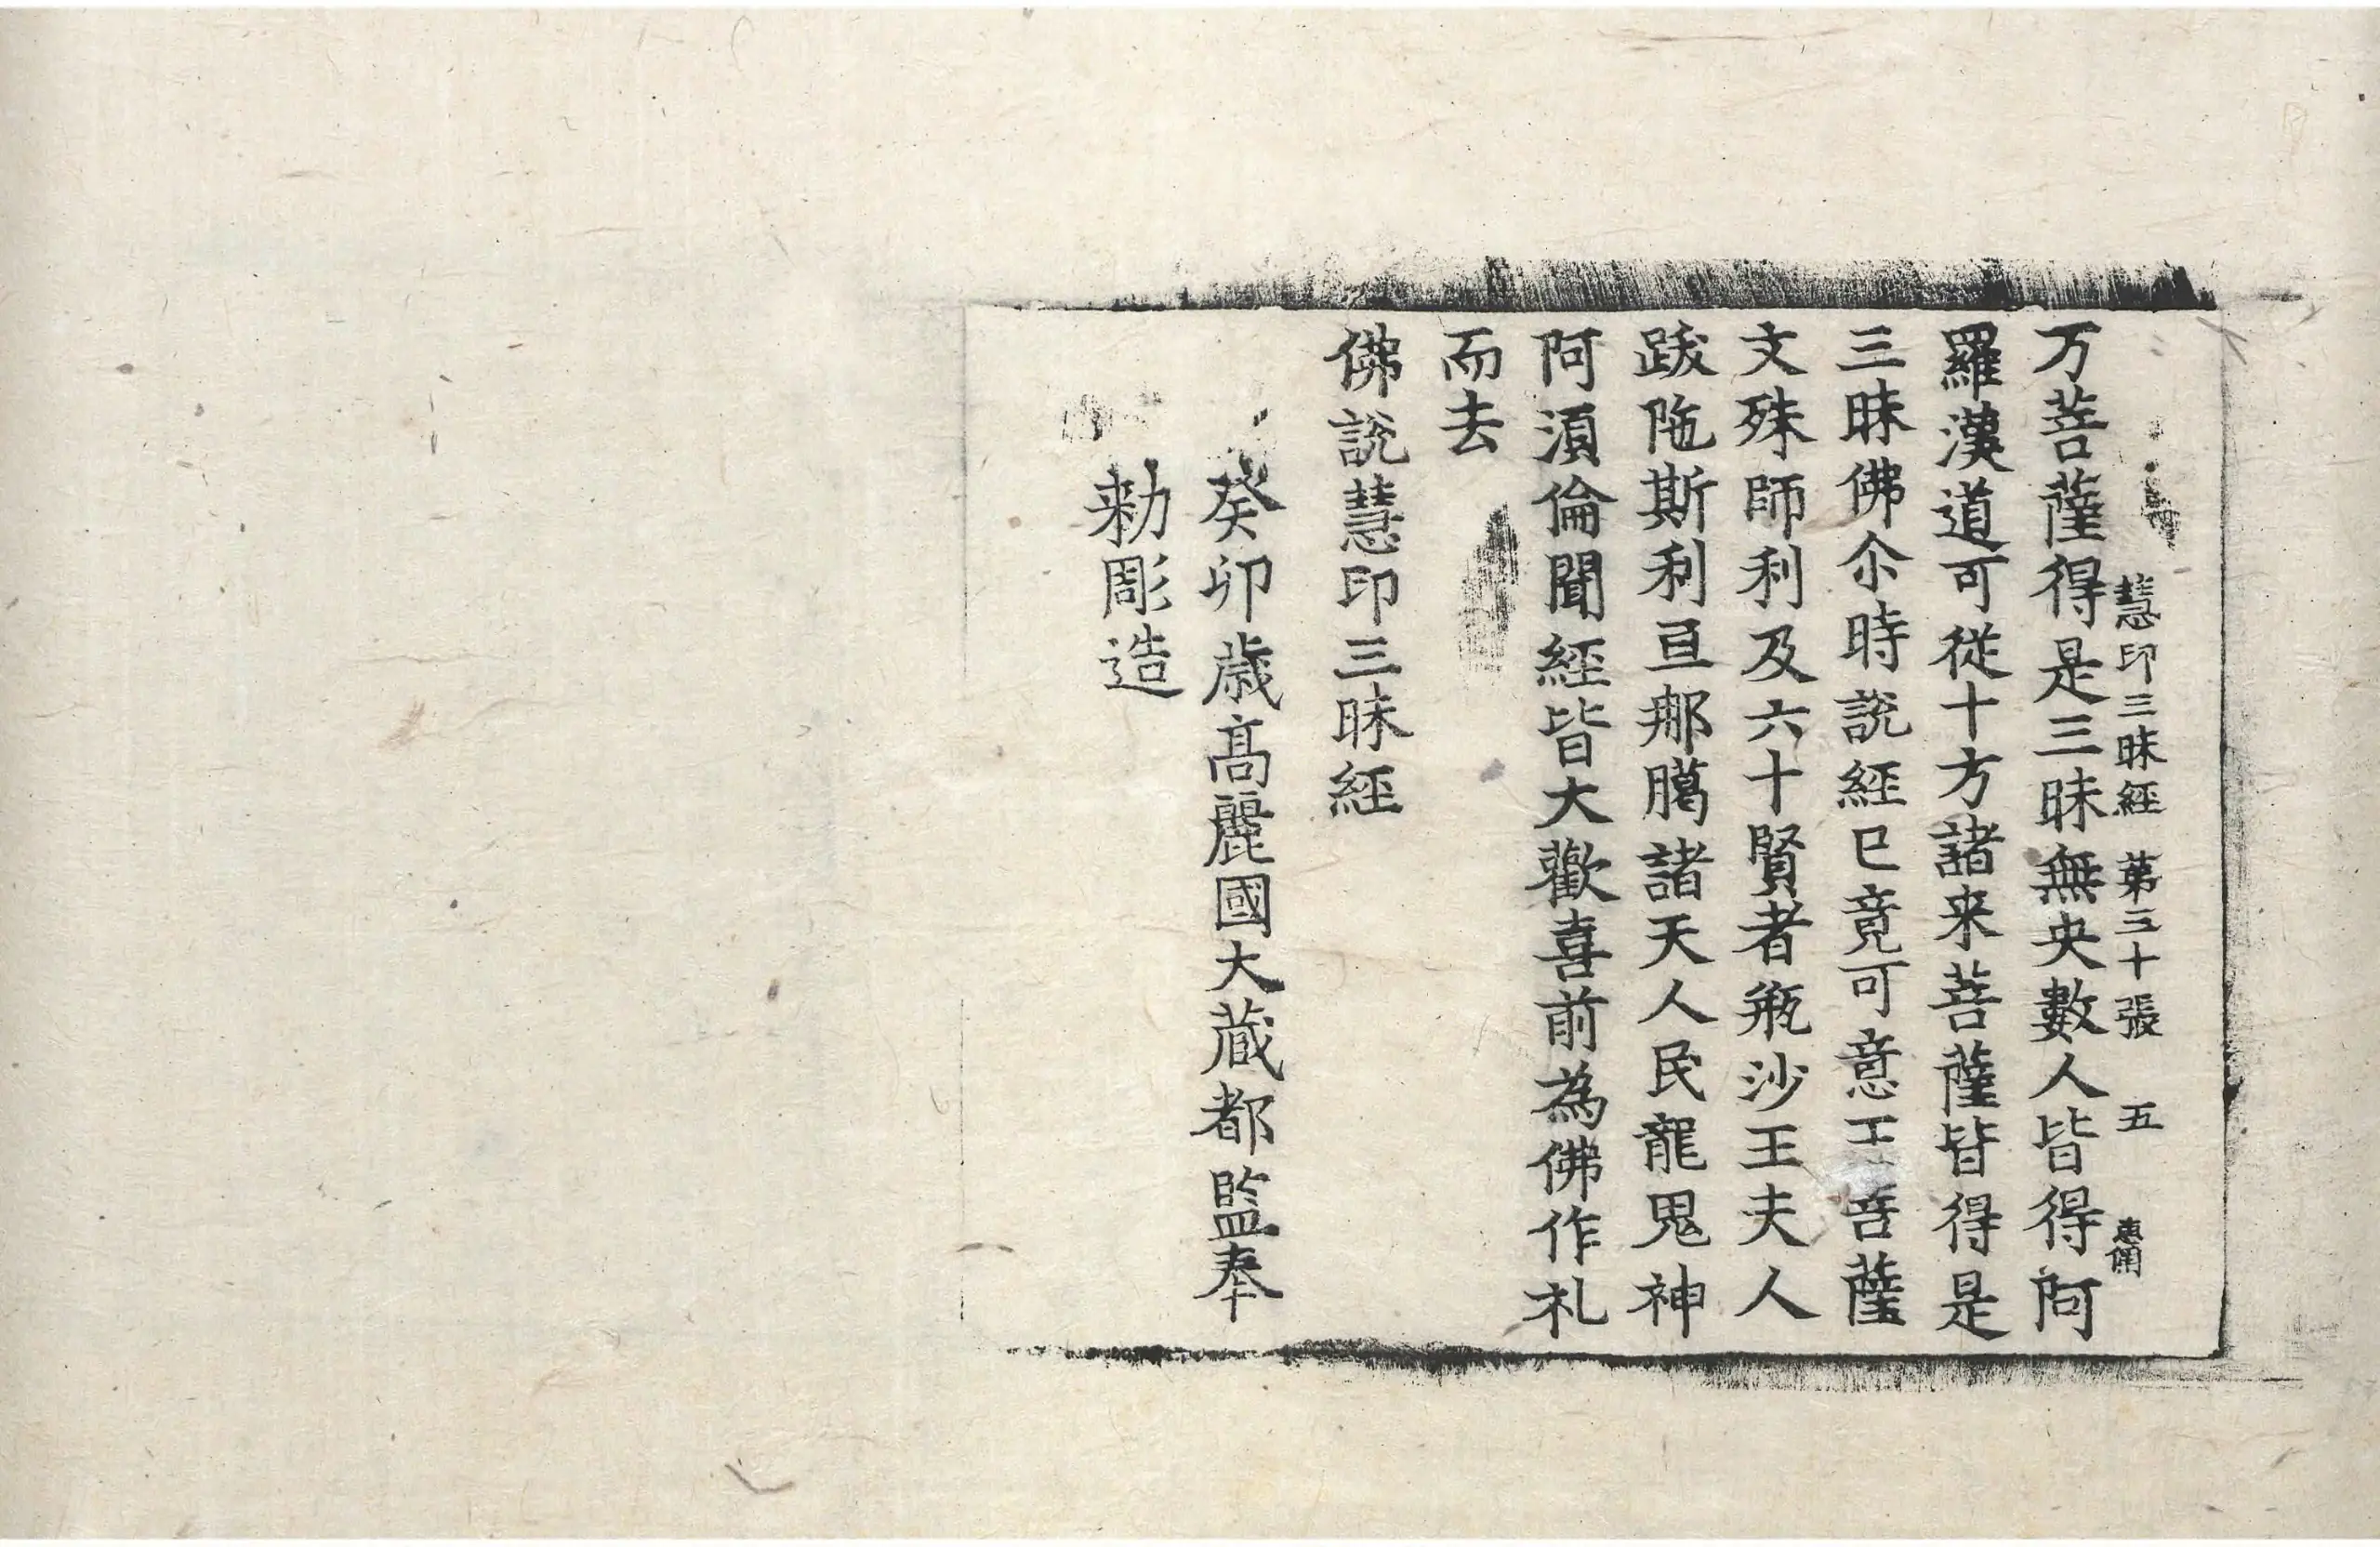 慧印三昧經 第三十張 五
万菩薩得是三昧無央數人皆得阿
羅漢道可從十方諸来菩薩皆得是
三昧佛尒時說經已竟可意王菩薩
文殊師利及六十賢者甁沙王夫人
跋陁斯利亘那臈諸天人民龍鬼神
阿湏倫聞經皆大歡喜前為佛作礼
而去
佛說慧印三昧經
癸卯歳髙麗國大蔵都監奉
勑彫造